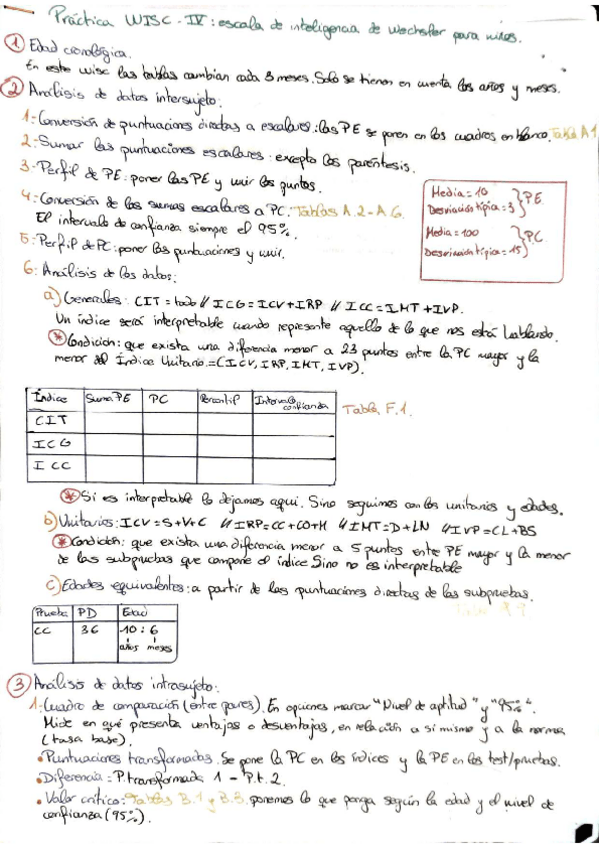 Práctica WISC-IV: escala de inteligencia de Wechsler para niños.
① Edad cronológica.
En este wisc las tablas cambian cada 3 meses. Solo se tienen en cuenta los años y meses.
② Análisis de datos intersujeto:
1: Conversión de puntuaciones directas a escalares: las PE se ponen en los cuadros en blanco. Tabla A.1
2: Sumar las puntuaciones escalares: excepto los paréntesis.
3: Perfil de PE: poner las PE y unir los puntos.
4: Conversión de las sumas escalares a PC. Tablas A.2-A.6.
El intervalo de confianza siempre el 95%.
5: Perfil de PC: poner las puntuaciones y unir.
Media = 10
Desviación típica = 3 } PE
Media = 100
Desviación típica = 15 } PC
6: Análisis de los datos:
a) Generales: CIT = todo // ICG = ICV + IRP // ICC = IMT + IVP.
Un índice será interpretable cuando represente aquello de lo que nos está hablando.
* Condición: que exista una diferencia menor a 23 puntos entre la PC mayor y la
menor del Índice Unitario = (ICV, IRP, IMT, IVP).
Índice Suma PE PC Percentil Intervalo confianza Tabla F.1.
CIT
ICG
ICC
* Si es interpretable lo dejamos aquí. Sino seguimos con los unitarios y edades.
b) Unitarios: ICV = S+V+C // IRP = CC+CO+M // IMT = D+LN // IVP = CL+BS
* Condición: que exista una diferencia menor a 5 puntos entre PE mayor y la menor
de las subpruebas que compone el índice. Sino no es interpretable
c) Edades equivalentes: a partir de las puntuaciones directas de las subpruebas.
Prueba PD Edad
CC 36 10 : 6
años meses
③ Análisis de datos intrasujeto:
1: Cuadro de comparación (entre pares). En opciones marcar "Nivel de aptitud" y "95%".
Mide en qué presenta ventajas o desventajas, en relación a sí mismo y a la norma
(tasa base).
• Puntuaciones transformadas. Se pone la PC en los índices y la PE en los test/pruebas.
• Diferencia = P. transformada 1 - P.t. 2.
• Valor crítico: Tablas B.1 y B.3. ponemos lo que ponga según la edad y el nivel de
confianza (95%).